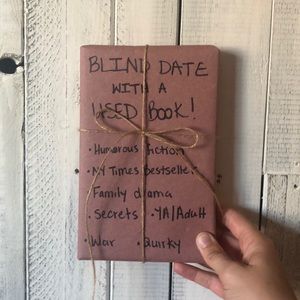 BLIND DATE
WITH A
USED BOOK!
• Humorous fiction
• NY Times Bestseller
Family drama
• Secrets • YA/Adult
• War • Quirky